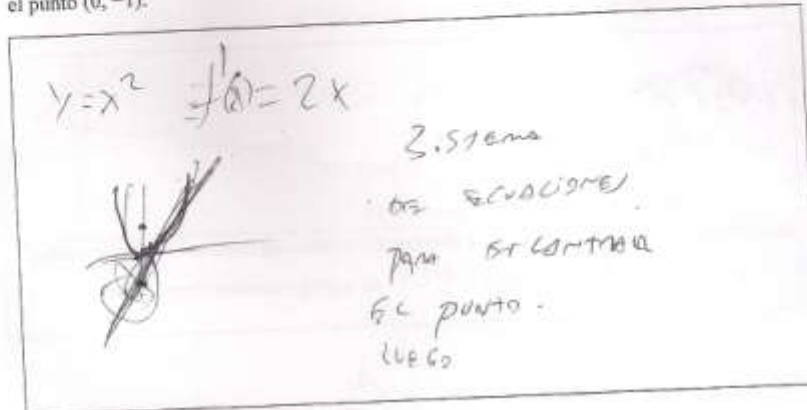 el punto (0, −1).
y = x² f'(x) = 2x
Sistema
de ecuaciones
para encontrar
el punto.
luego